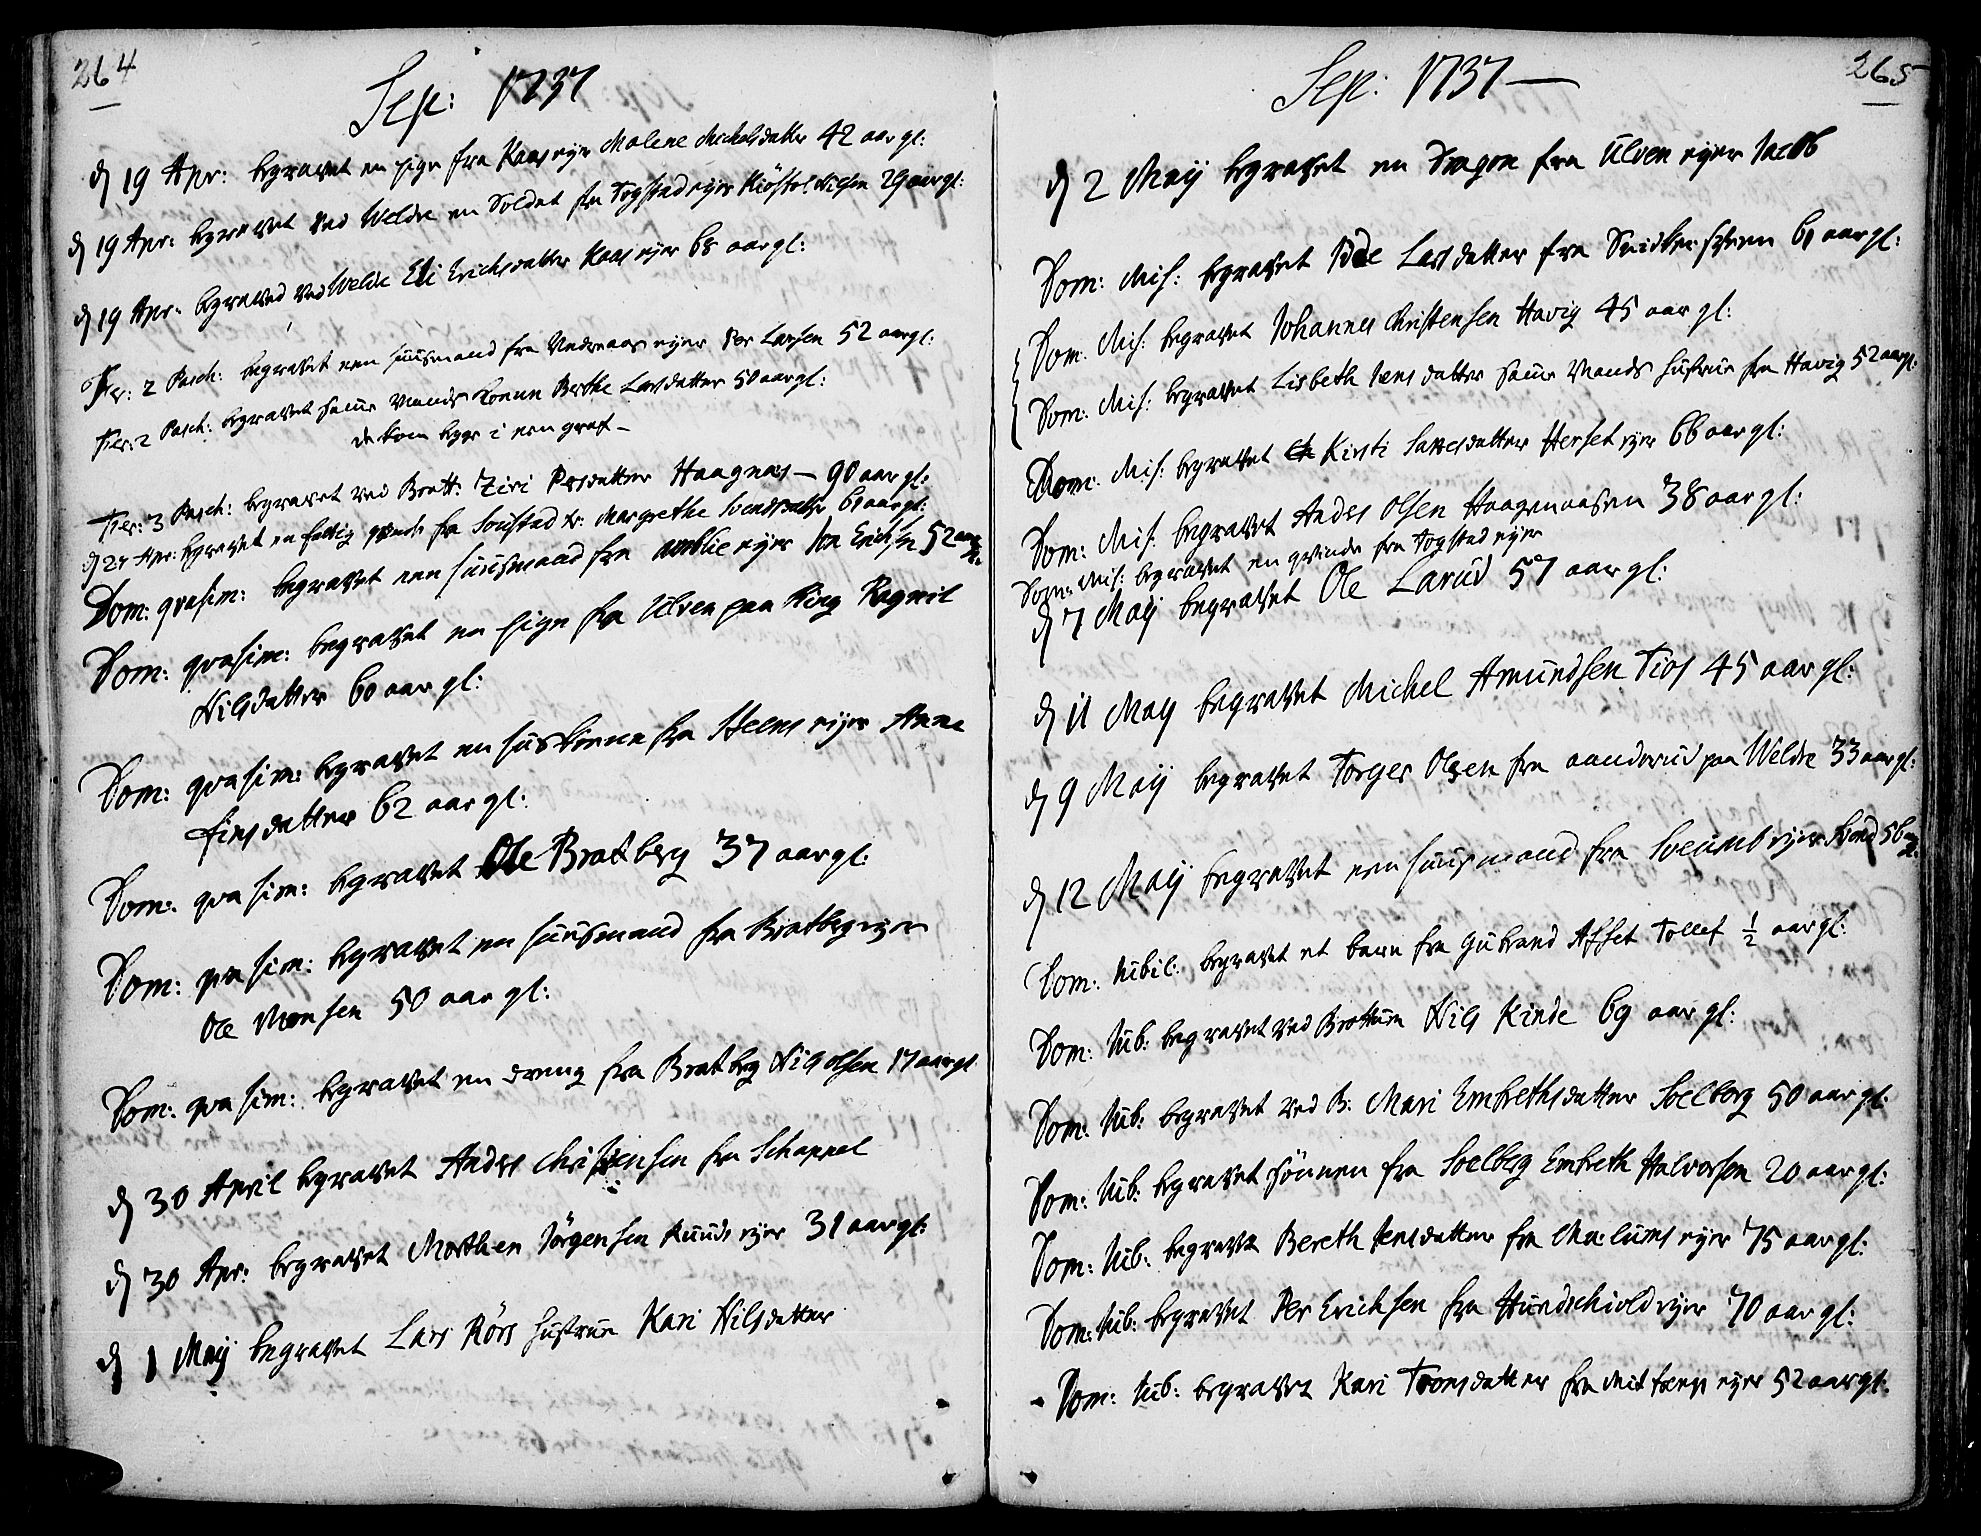 264
Sep: 1737
d 19 Apr: begravet en pige fra Kaas ejer Malene Michelsdatter 42 aar gl:
d 19 Apr: begravet ved Weldre en Soldat fra Togstad ejer Kiöstol Nilsen 29 aar gl:
d 19 Apr: begraved ved Weldre Eli Erichsdatter Kaas ejer 68 aar gl:
Fer: 2 Pasch: begravet een huusmand fra ejer Per Larsen 52 aar gl:
Fer: 2 Pasch: begravet samme Mands Konne Berthe Larsdatter 50 aar gl:
de kom begge i een graf –
Fer: 3 Pasch: begravet ved Brøtt: Ziri Persdatter Haagnæs – 90 aar gl:
d 27 Apr: begravet en fattig qvinde fra Margrethe Svendsdatter 60 aar gl:
Dom: qvasim: begravet een huusmand fra ejer Jon Erichsen 52 aar gl:
Dom: qvasim: begravet en pige fra Ulven paa Ring Ragnil
Nilsdatter 60 aar gl:
Dom: qvasim: begravet en huskonne fra Steens ejer Anne
Finsdatter 62 aar gl:
Dom: qvasim: begravet Ole Bratberg 37 aar gl:
Dom: qvasim: begravet en huusmand fra Bratberg ejer
Ole Monsen 50 aar gl:
Dom: qvasim: begravet en dreng fra Bratberg Nils Olsen 17 aar gl
d 30 April begravet Anders Christensen fra Schappel
d 30 Apr: begravet Morthen Jörgensen Ruuds ejer 31 aar gl:
d 1 Maij begravet Lars Rörs hustrue Kari Nilsdatter
265
Sep: 1737 –
d 2 Maij begravet en Dragon fra Ulven ejer Jacob
Dom: Mis: begravet Larsdatter fra 61 aar gl:
Dom: Mis: begravet Johannes Christensen Havig 45 aar gl:
Dom: Mis: begravet Lisbeth Jensdatter samme Mands hustrue fra Havig 52 aar gl:
Dom: Mis: begravet Kirsti Herset ejer 66 aar gl:
Dom: Mis: begravet Anders Olsen Haagenaasen 38 aar gl:
Dom: Mis: begravet en qvinde fra Togstad ejer
d 7 Maij begravet Ole Larud 57 aar gl:
d 11 Maij begravet Michel Amundsen Tiøs 45 aar gl:
d 9 Maij begravet Torger Olsen fra aanderud paa Weldre 33 aar gl:
d 12 Maij begravet een huusmand fra Sveum ejer Svend 56 aar gl:
Dom: Jubil: begravet et barn fra Gubrand Afset Tollef ½ aar gl:
Dom: Jub: begravet ved Brøttum Nils Kinde 69 aar gl:
Dom: Jub: begravet ved B: Mari Embrethsdatter Soelberg 50 aar gl:
Dom: Jub: begravet sönnen fra Soelberg Embreth Halvorsen 20 aar gl:
Dom: Jub: begravet Bereth Jensdatter fra Mælums ejer 75 aar gl:
Dom: Jub: begravet Per Erichsen fra Hundschiold ejer 70 aar gl:
Dom: Jub: begravet Kari Tronsdatter fra ejer 52 aar gl: